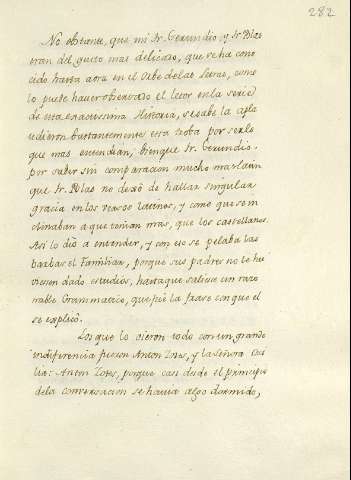 282
No obstante, que mi Fr. Gerundio, y Fr. Blas
eran del gusto mas delicado, que se ha cono
cido hasta aora en el Orbe de las Letras, como
lo puede haver observado el lector en la serie
de esta exactissima Historia, se sabe la apla
udieron bastantemente esta troba por ser lo
que mas entendian, bienque Fr. Gerundio.
por saber sin comparacion mucho mas latin
que Fr. Blas no dexó de hallar singular
gracia en los versos latinos, y como que se in
clinaba a que tenian mas, que los castellanos.
Asi lo dió a entender, y con eso se pelaba las
barbas el Familiar, porque sus padres no le hu
viesen dado estudios, hasta que saliese un razo
nable Grammatico, que fué la frase con que el
se explicó.
Los que lo oieron todo con un grande
indiferencia fueron Anton Zotes, y la Señora
Anton Zotes, porque casi desde el principio
de la conversacion se havia algo dormido,